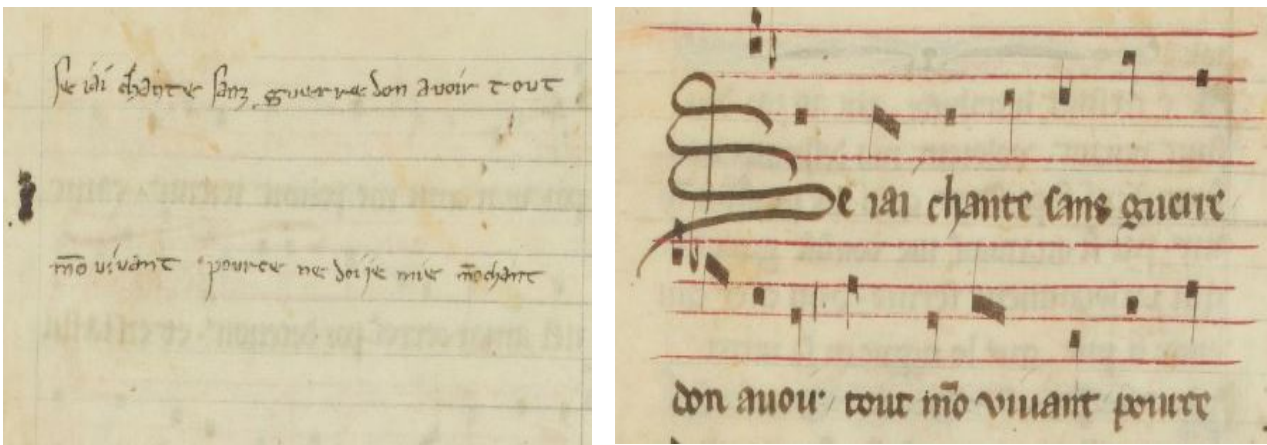 se iai chante sanz guerredon avoir tout
mō vivant pource ne doi je mie mō chant
Se iai chante sans guerre
don auoir tout mō viuant pource